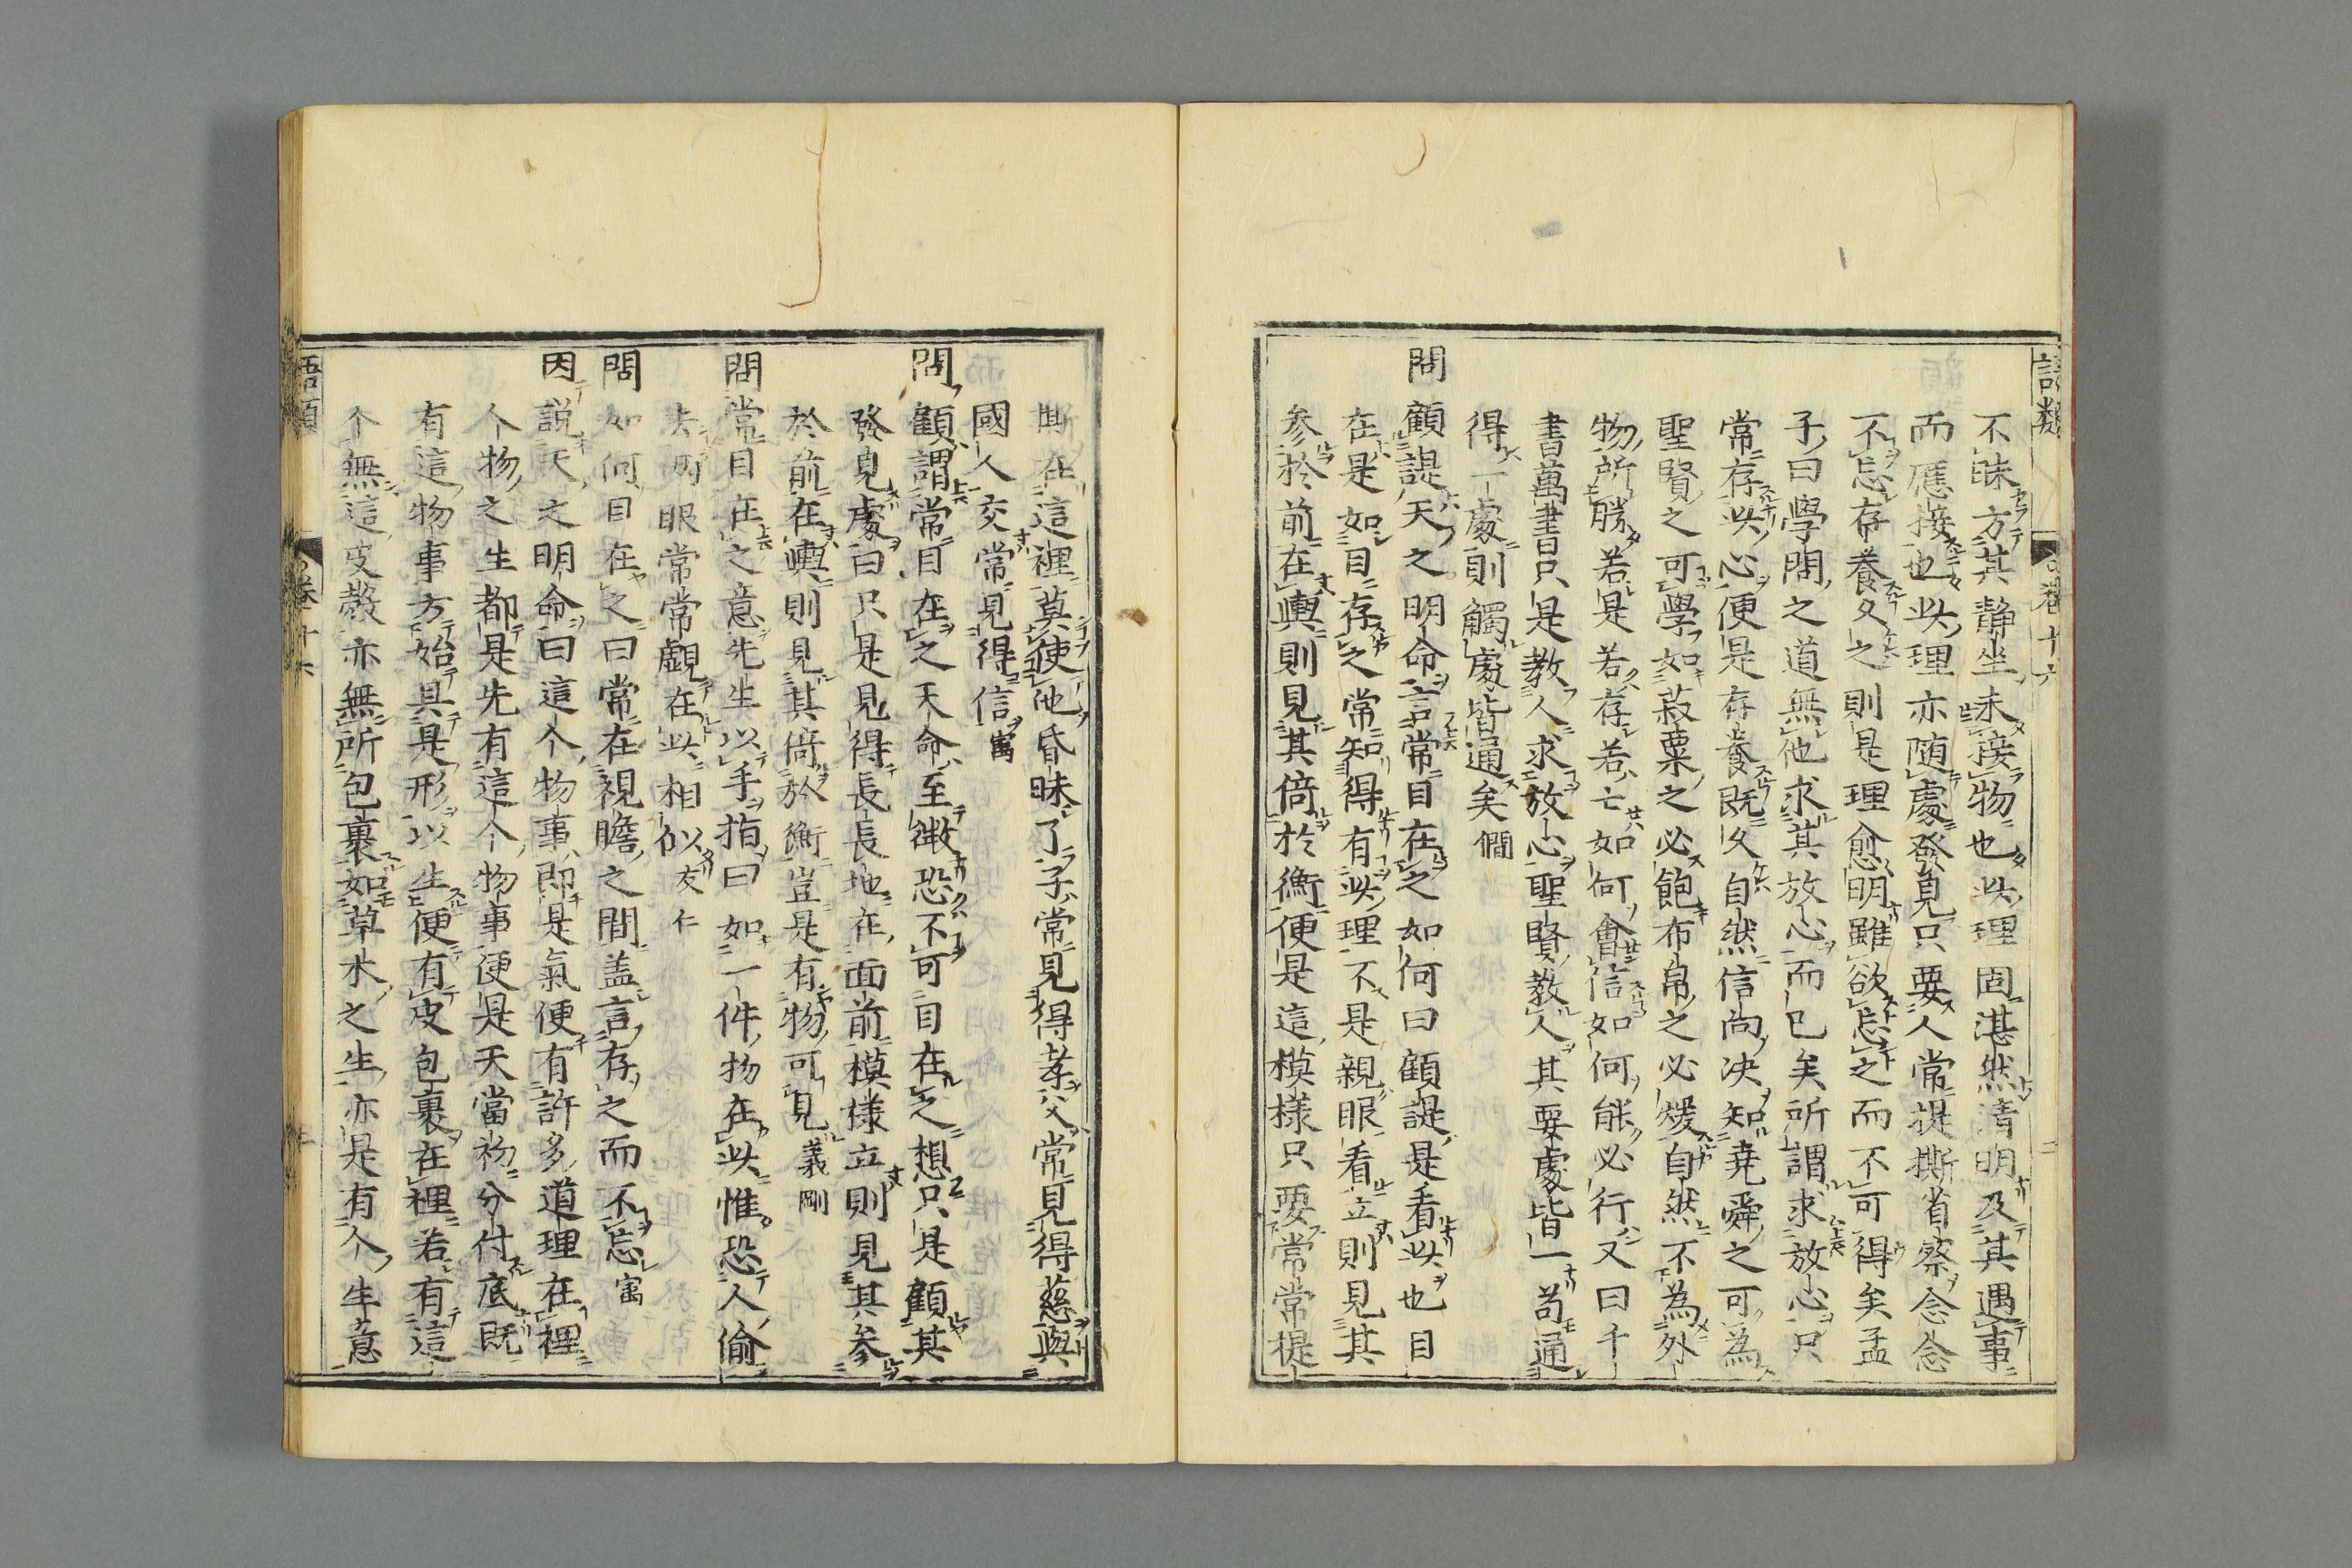 語類 卷十六 二
不昧方其靜坐未接物也此理固湛然清明及其遇事
而應接也此理亦随處發見只要人常提撕省察念念
不忘存養久之則是理愈明雖欲忘之而不可得矣孟
子曰學問之道無他求其放心而已矣所謂求放心只
常存此心便是存養既久自然信向决知堯舜之可為
聖賢之可學如菽粟之必飽布帛之必煖自然不為外
物所勝若是若存若亡如何會信如何能必行又曰千
書萬書只是教人求放心聖賢教人其要處皆一苟通
得一處則觸處皆通矣僩
問顧諟天之明命言常目在之如何曰顧諟是看此也目
在是如目存之常知得有此理不是親眼看立則見其
参於前在輿則見其倚於衡便是這模様只要常常提
撕在這裡莫使他昏昧了子常見得孝父常見得慈與
國人交常見得信㝢
問顧謂常目在之天命至微恐不可目在之想只是顧其
發見處曰只是見得長長地在面前模様立則見其参
於前在輿則見其倚於衡豈是有物可見義剛
問常目在之意先生以手指曰如一件物在此惟恐人偷
去两眼常常覷在此相似友仁
問如何目在之曰常在視瞻之間盖言存之而不忘㝢
因說天之明命曰這个物事即是氣便有許多道理在裡
个物之生都是先有這个物事便是天當初分付底既
有這物事方始具是形以生便有皮包裹在裡若有這
个無這皮殼亦無所包裹如草木之生亦是有个生意
語類 卷十六